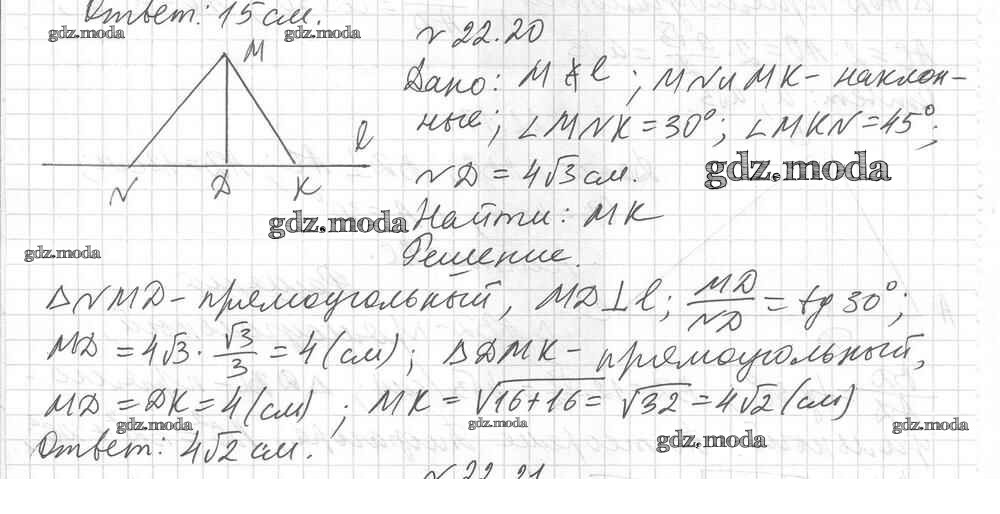 Ответ: 15 см.
gdz.moda
gdz.moda
gdz.moda
N 22.20
M
l
N
D
K
Дано: M ∉ l ; MN и MK - наклон-
ные; ∠MNK = 30°; ∠MKN = 45°;
ND = 4√3 см.
gdz.moda
Найти: MK
gdz.moda
Решение.
gdz.moda
△NMD - прямоугольный, MD⊥l; MD/ND = tg 30°;
MD = 4√3 · √3/3 = 4 (см); △DMK - прямоугольный,
MD = DK = 4 (см) ; MK = √16+16 = √32 = 4√2 (см)
gdz.moda
gdz.moda
gdz.moda
gdz.moda
Ответ: 4√2 см.
N 22.21